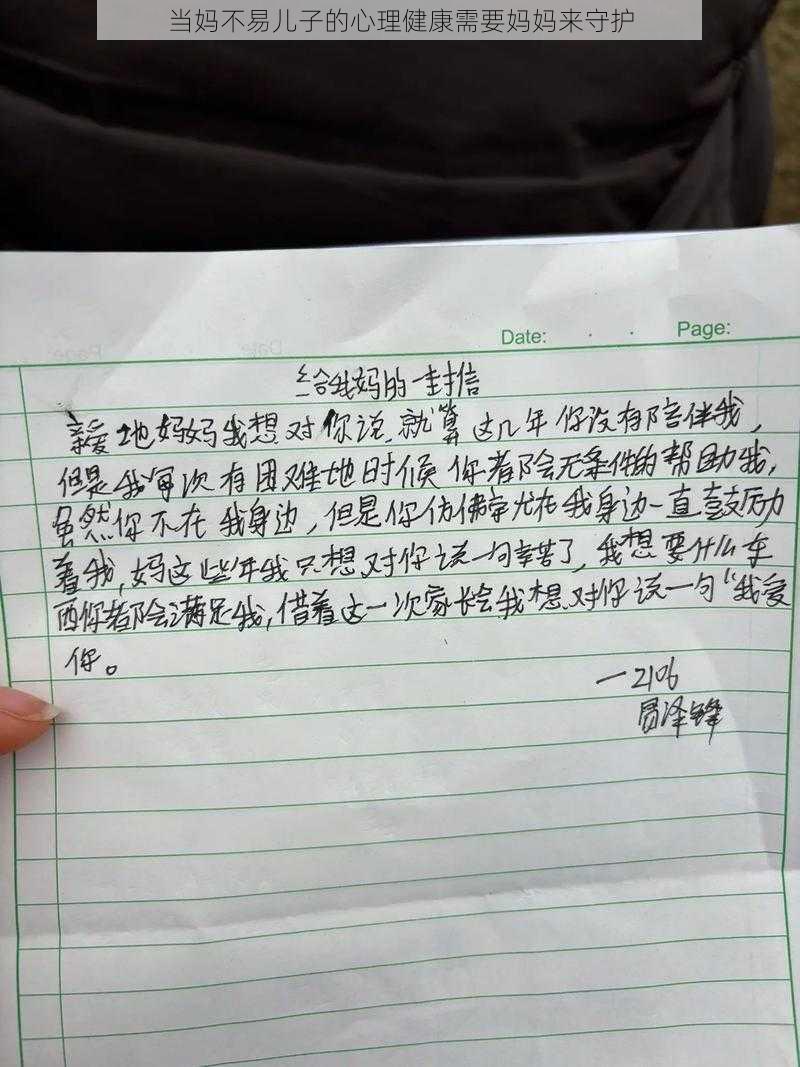 当妈不易儿子的心理健康需要妈妈来守护
Date: . . Page:
给我妈的一封信
亲爱地妈妈我想对你说,就算这几年你没有陪伴我,
但是我每次有困难地时候你都会无条件的帮助我,
虽然你不在我身边,但是你仿佛字尤在我身边一直鼓厉力
着我,妈这些年我只想对你说一句辛苦了,我想要什么东
西你都会满足我,借着这一次家长会我想对你说一句“我爱
你。
一2106
泽锋